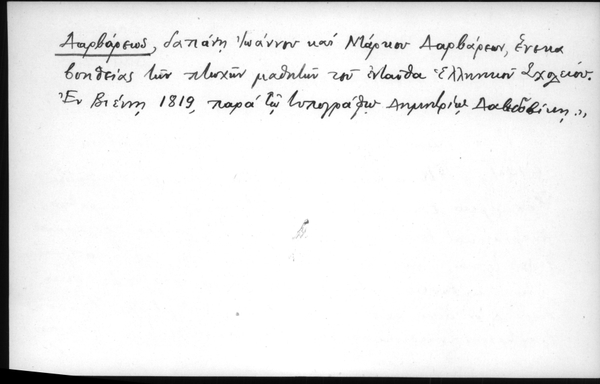 Δαρβάρεως, δαπάνῃ Ἰωάννου καὶ Μάρκου Δαρβάρεων, ἕνεκα
βοηθείας τῶν πτωχῶν μαθητῶν τοῦ ἐνταῦθα Ἑλληνικοῦ Σχολείου.
Ἐν Βιέννῃ 1819, παρὰ τῷ τυπογράφῳ Δημητρίῳ Δαβιδοβίκῃ.,,